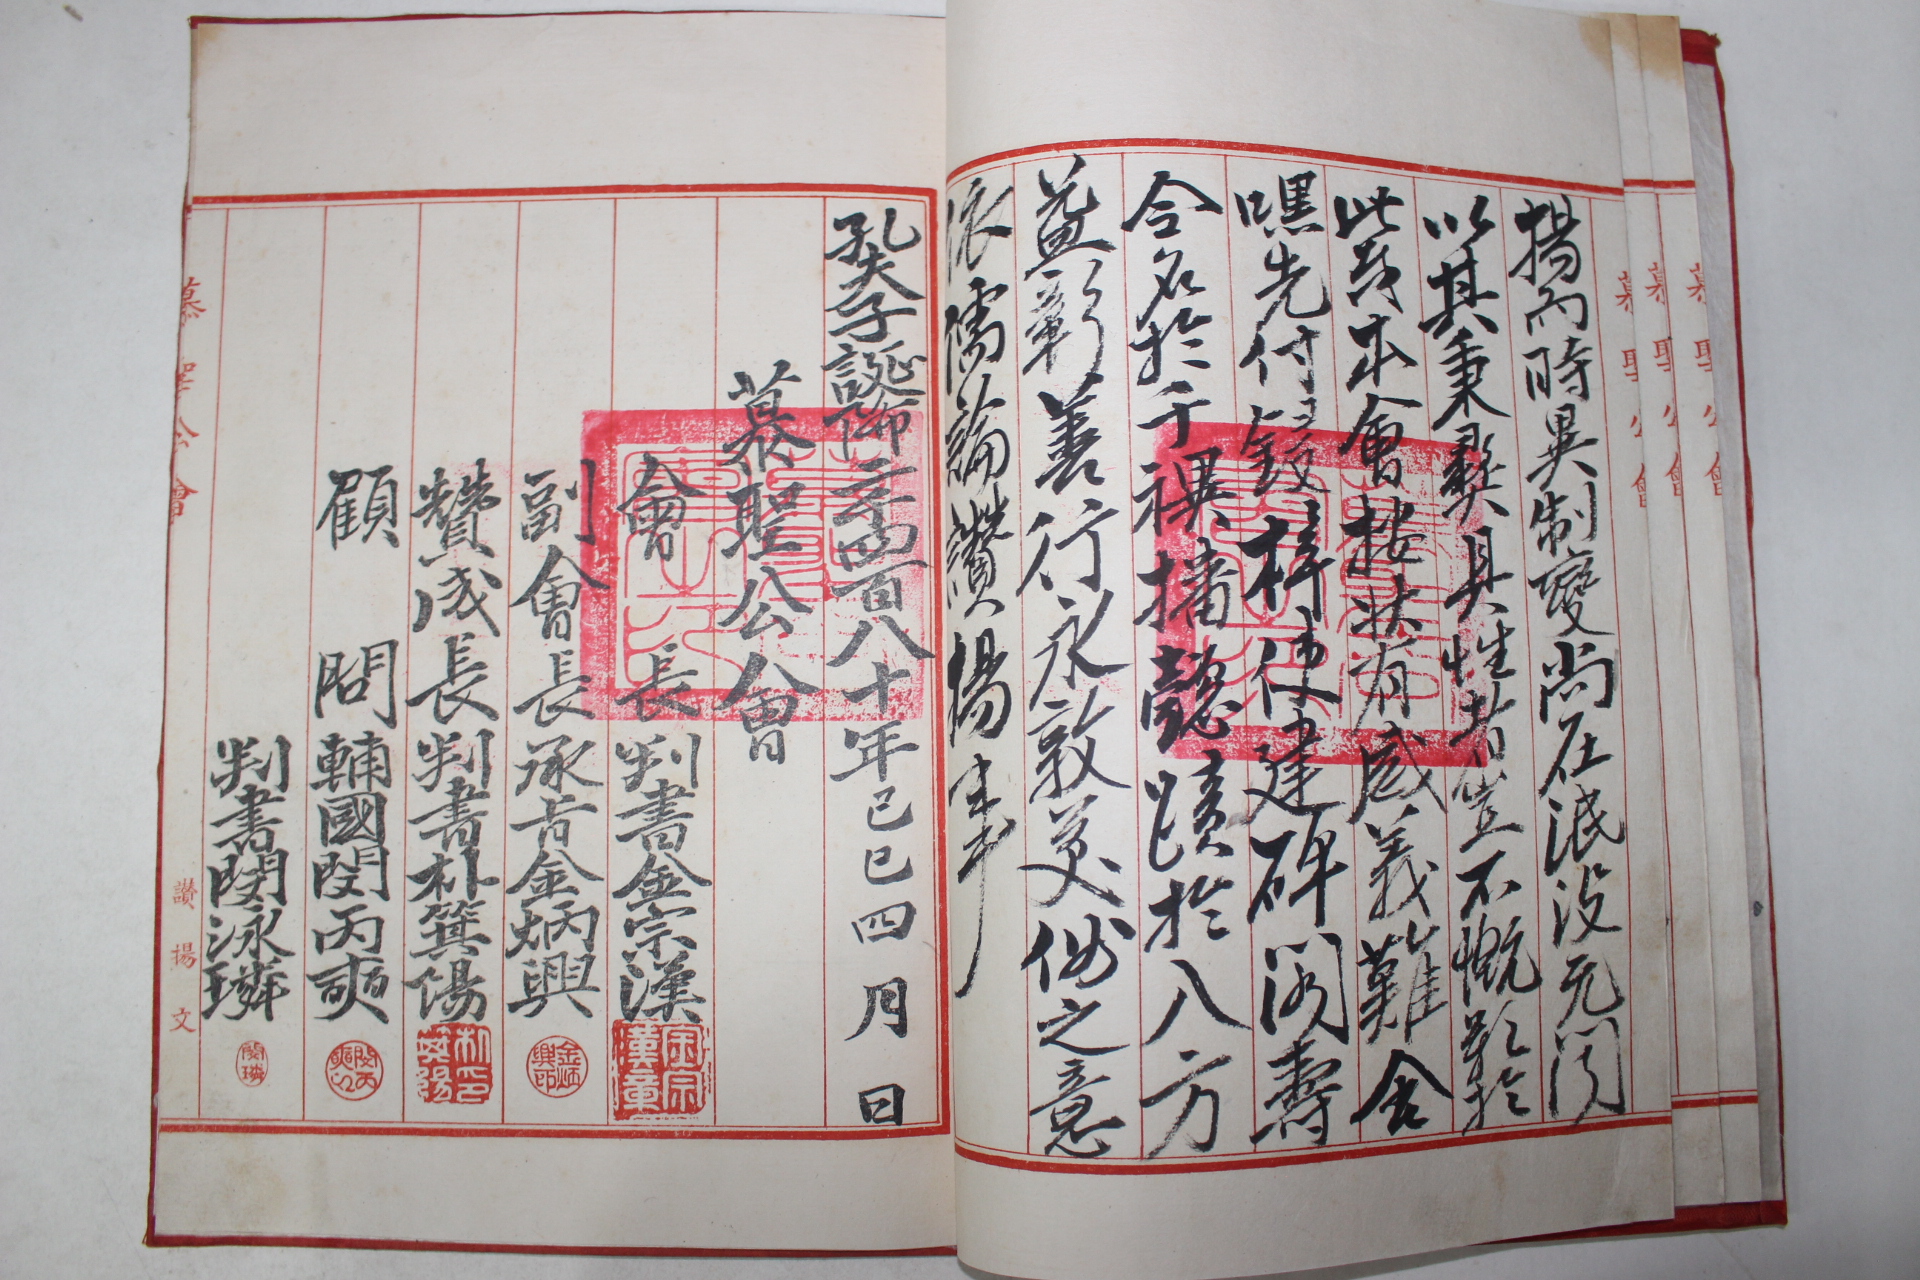 揚而時異制變尚在泯沒无聞
以其秉彝具性者豈不慨歎於
此哉本會按狀有感義難含
嘿先付
鋟梓使建碑閣壽
令名於千禩播懿蹟於八方
益彰善行永敦美俗之意
依儒論讚揚事
孔夫子誕降二千四百八十年己巳四月 日
慕聖公會
會長 判書金宗漢
副會長 承旨金炳興
贊成長 判書朴箕陽
顧問 輔國閔丙奭
判書閔泳璘
慕聖公會
讚揚文
慕聖公會
慕聖公會
慕聖公會